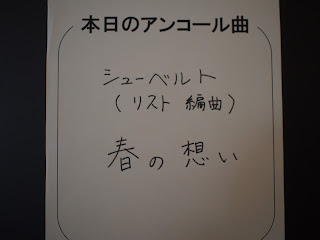 本日のアンコール曲
シューベルト
(リスト 編曲)
春の想い